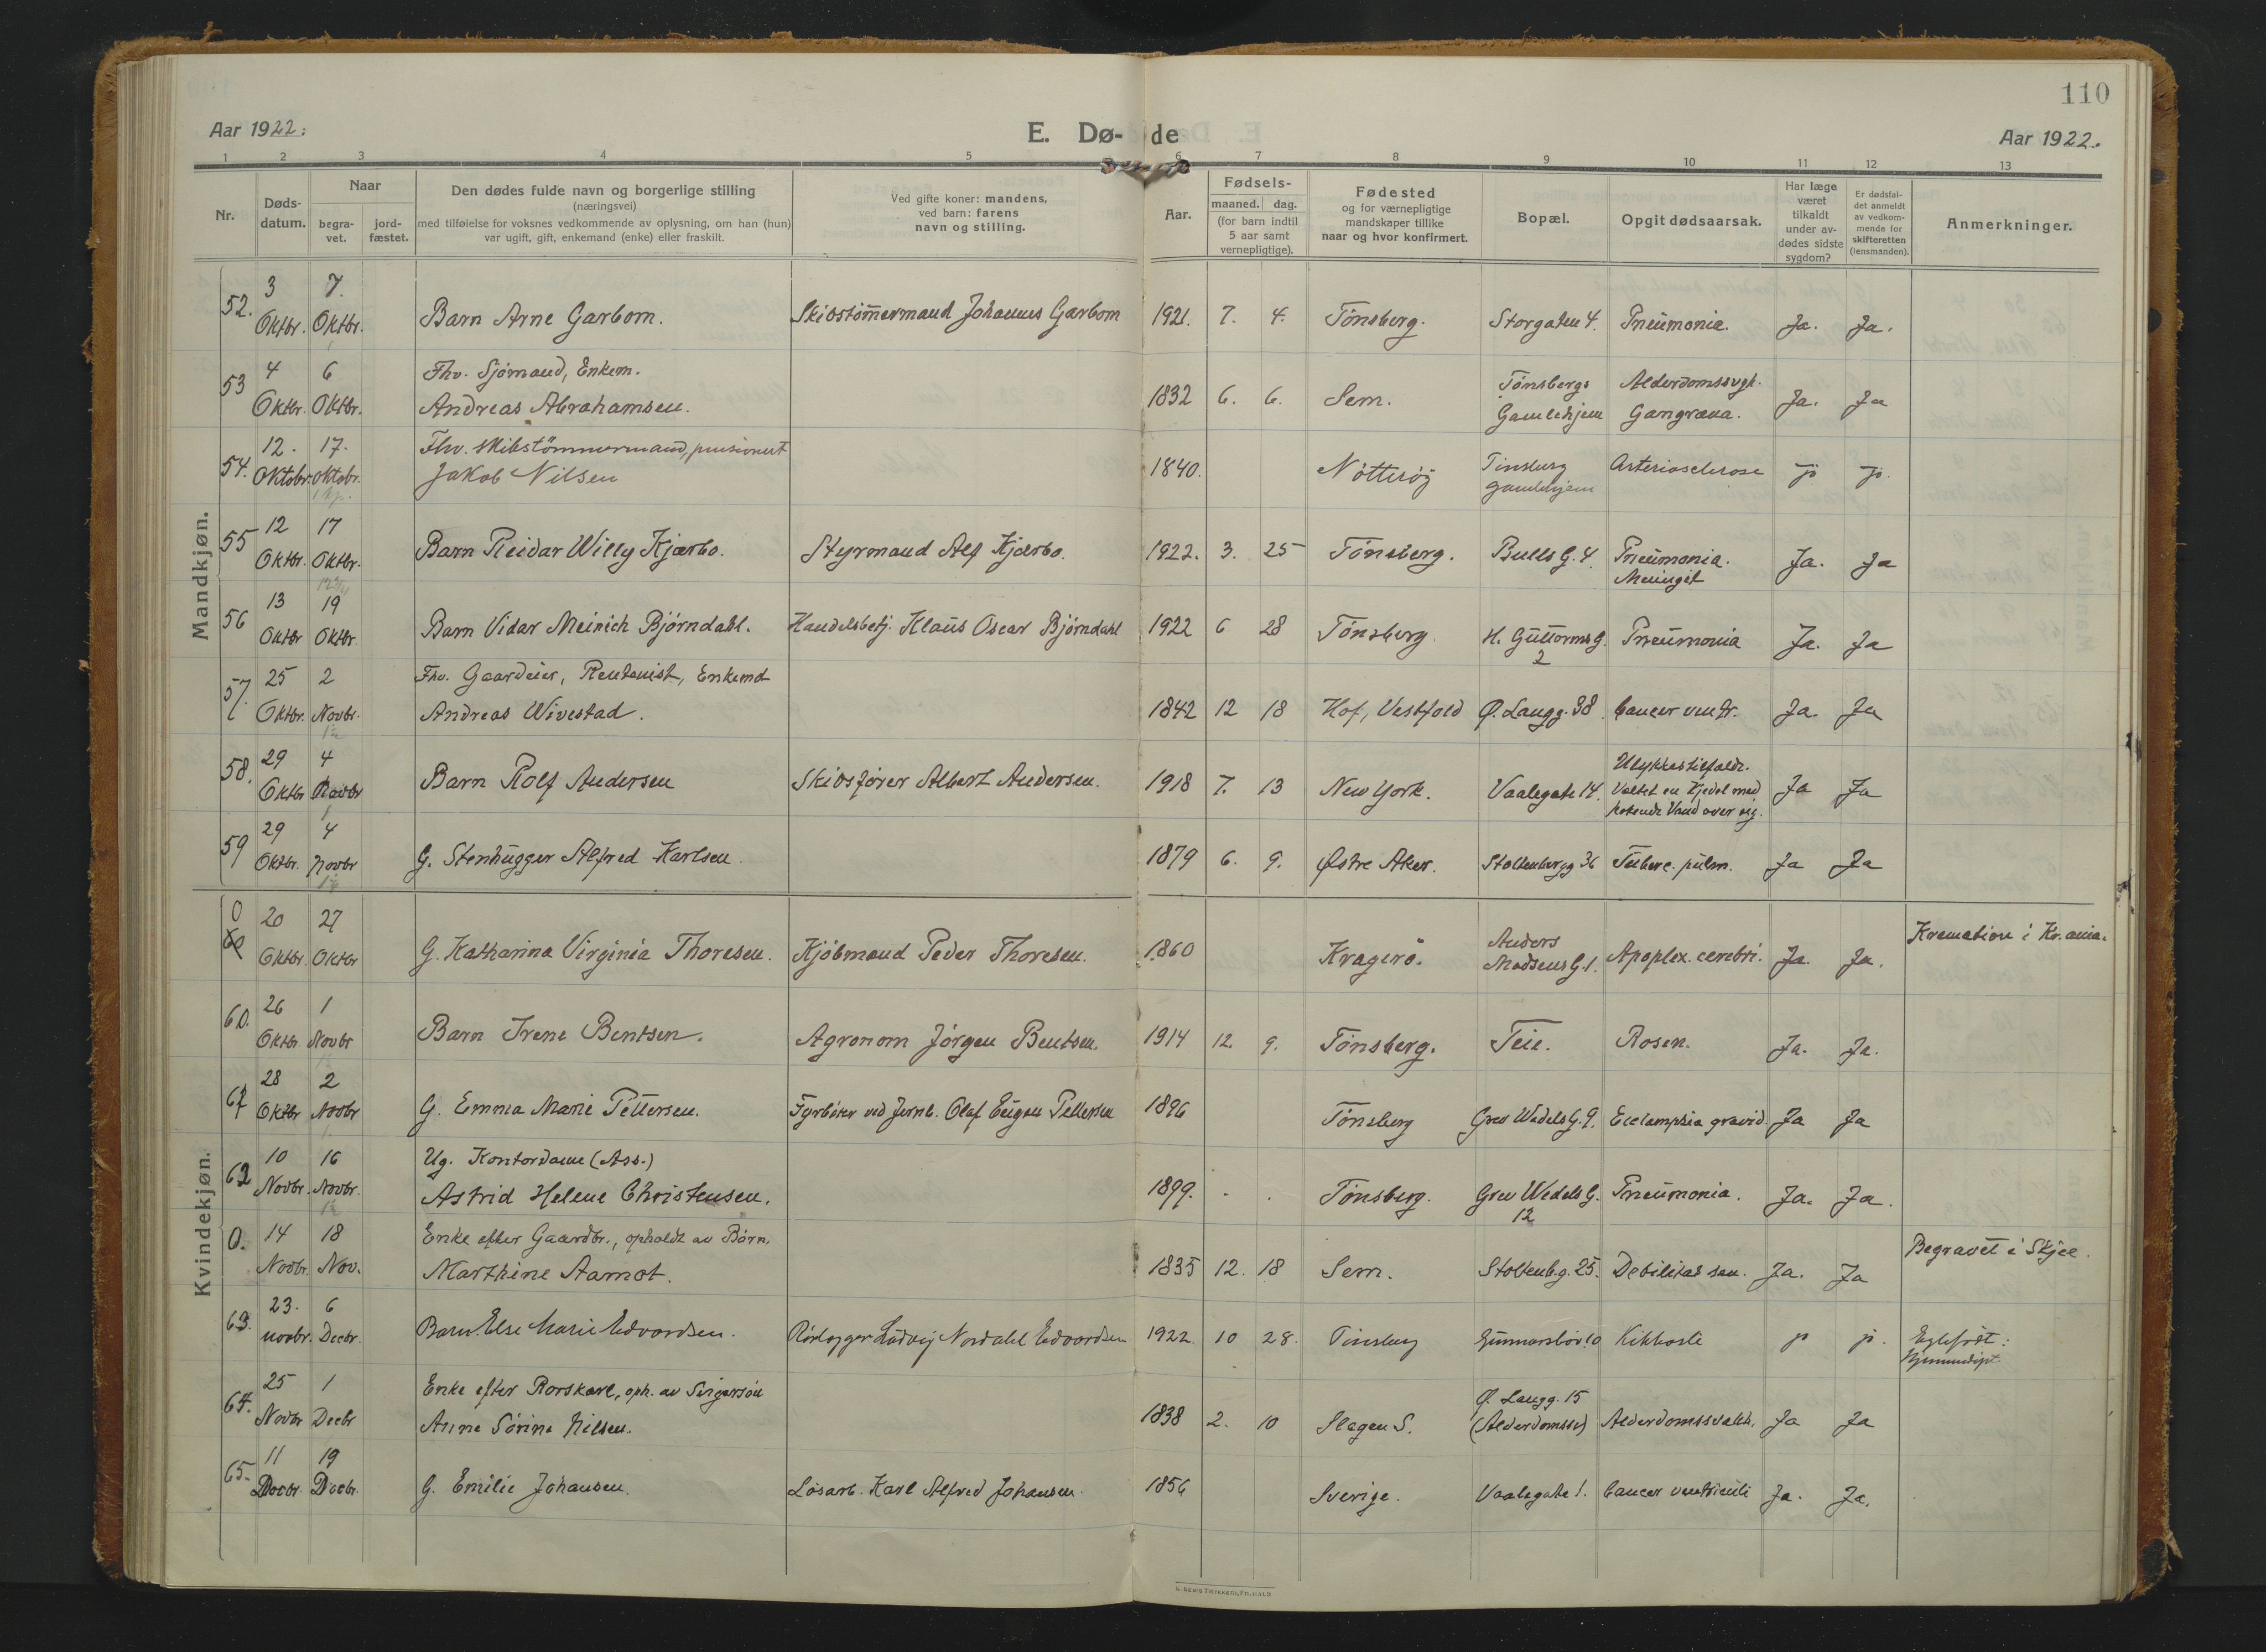 110
Aar 1922.
E. Dø- de
Aar 1922.
1 2 3 4 5 6 7 8 9 10 11 12 13
Nr.
Døds-
datum.
Naar
begra-
vet.
jord-
fæstet.
Den dødes fulde navn og borgerlige stilling
(næringsvei)
med tilføielse for voksnes vedkommende av oplysning, om han (hun)
var ugift, gift, enkemand (enke) eller fraskilt.
Ved gifte koner: mandens,
ved barn: farens
navn og stilling.
Aar.
Fødsels-
maaned. dag.
(for barn indtil
5 aar samt
vernepligtige).
Fødested
og for værnepligtige
mandskaper tillike
naar og hvor konfirmert.
Bopæl.
Opgit dødsaarsak.
Har læge
været
tilkaldt
under av-
dødes sidste
sygdom?
Er dødsfal-
det anmeldt
av vedkom-
mende for
skifteretten
(lensmanden).
Anmerkninger.
Mandkjøn.
3 7.
52. Oktbr. Oktbr. Barn Arne Garbom. Skibstømmermand Johannes Garbom 1921. 7. 4. Tönsberg. Storgaten 4. Pneumonia. Ja. Ja.
4 6 Fhv. Sjømand, Enkem. Tönsbergs Alderdomssvgh.
53 Oktbr. Oktbr. Andreas Abrahamsen. 1832 6. 6. Sem. Gamlehjem Gangræna. Ja. Ja
12. 17. Fhv. skibstömmermand, pensionert Tönsberg
54. Oktobr. Oktobr. Jakob Nilsen 1840. Nötteröy gamlehjem Arteriosclerose ja ja.
12 17
55 Oktbr. Oktbr. Barn Reidar Willy Kjærbo. Styrmand Alf Kjærbo. 1922. 3. 25 Tönsberg. Bulls G. 4. Pneumonia. Ja. Ja
Meningit
13 19
56 Oktbr Oktbr. Barn Vidar Meinich Bjørndahl. Handelsbetj. Klaus Oscar Bjørndahl 1922 6 28 Tönsberg. H. Guttorms G. Pneumonia Ja. Ja
2
25 2 Fhv. Gaardeier, Rentenist, Enkemd
57. Oktbr. Novbr. Andreas Wivestad. 1842 12 18 Hof, Vestfold Ø. Langg. 38. Cancer ventr. Ja. Ja
29 4 Ulykkestilfælde.
58. Oktbr Novbr Barn Rolf Andersen Skibsfører Albert Andersen. 1918 7. 13 New York. Vaalegate 14. Væltet en Kjedel med Ja Ja
kokende Vand over sig.
29 4
59 Oktbr. Novbr G. Stenhugger Alfred Karlsen. 1879 6. 9. Østre Aker. Stoltenbergg 36 Tuberc. pulm. Ja Ja
Kvindekjøn.
0 20 27 Anders Kremation i Kr.ania.
Oktbr. Oktbr G. Katharina Virginia Thoresen. Kjøbmand Peder Thoresen. 1860 Kragerö. Madsens G. 1. Apoplex. cerebri. Ja. Ja.
26 1
60. Oktbr Novbr Barn Irene Bentsen. Agronom Jörgen Bentsen. 1914 12. 9. Tönsberg. Teie. Rosen. Ja. Ja.
28 2
61 Oktbr Novbr G. Emma Marie Pettersen. Fyrbøter ved Jernb. Olaf Eugen Pettersen 1896 Tönsberg Grev Wedels G. 9. Ecclampsia gravid. Ja Ja
10 16 Ug. Kontordame (Ass.)
62 Novbr. Novbr. Astrid Helene Christensen. 1899. Tönsberg. Grev Wedels G. Pneumonia. Ja. Ja.
12
0. 14 18 Enke efter Gaardbr., opholdt av Børn. Begravet i Skjee.
Novbr. Nov. Marthine Aamot. 1835 12. 18 Sem. Stoltenb.g. 25. Debilitas sen. Ja. Ja
23. 6
63. novbr. Decbr. Barn Else Marie Edvardsen. Rørlegger Ludvig Nordahl Edvardsen 1922. 10 28. Tönsberg Gunnarsbøv. 10 Kikhoste ja ja. Egtefødt:
Hjemmedøpt
25 1 Enke efter Rorskarl, oph. av Svigersön Ø. Langg. 15
64. Novbr Decbr Anne Sörine Nilsen. 1838 2. 10 Slagen S. (Alderdomssv) Alderdomssvakh. Ja Ja
11 19
65. Decbr. Decbr. G. Emilie Johansen. Løsarb. Karl Alfred Johansen. 1856 Sverige. Vaalegate 1. Cancer ventriculi Ja. Ja.